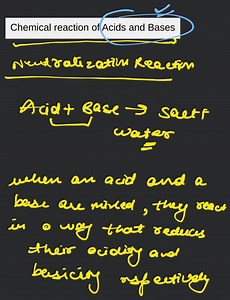 Chemical reaction of Acids and Bases
Neutralization Reaction
Acid + Base → Salt +
water
when an acid and a
base are mixed, they react
in a way that reduces
their acidity and
basicity respectively